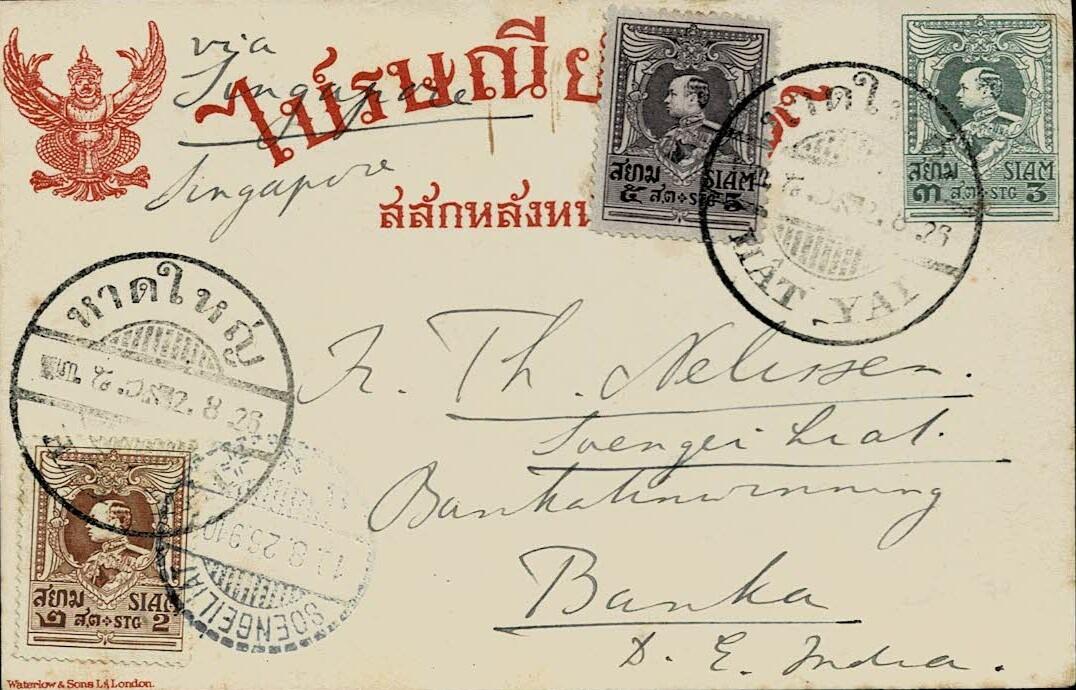 via
Singapore
ไปรษณีย
Singapore
สลักหลังห
สยาม SIAM
๕ ส.ต STG 5
สยาม SIAM
๓ ส.ต STG 3
หาดใ
2.8.26
HÂT YAI
หาดใหญ่
2.8.26
Th. Nelissen.
Soengei Liat.
Bankatinwinning
Banka
D. E. India.
8.26.9
SOENGEILIAT
สยาม SIAM
๒ ส.ต STG 2
Waterlow & Sons Ld London.